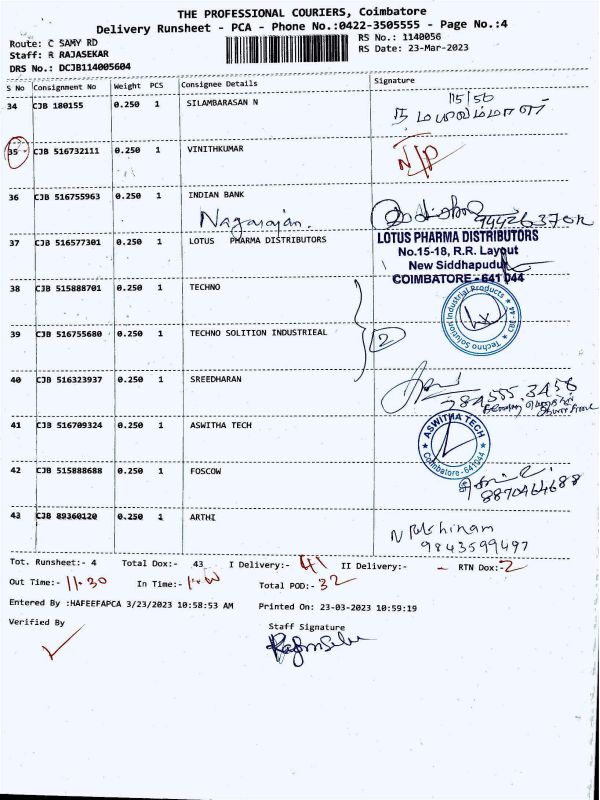 THE PROFESSIONAL COURIERS, Coimbatore
Delivery Runsheet - PCA - Phone No.:0422-3505555 - Page No.:4
Route: C SAMY RD
RS No.: 1140056
Staff: R RAJASEKAR
RS Date: 23-Mar-2023
DRS No.: DCJB114005604
S No Consignment No Weight PCS Consignee Details Signature
34 CJB 180155 0.250 1 SILAMBARASAN N
35 CJB 516732111 0.250 1 VINITHKUMAR N/P
36 CJB 516755963 0.250 1 INDIAN BANK
Nagarajan.
37 CJB 516577301 0.250 1 LOTUS PHARMA DISTRIBUTORS
LOTUS PHARMA DISTRIBUTORS
No.15-18, R.R. Layout
New Siddhapudur
COIMBATORE - 641 044
38 CJB 515888701 0.250 1 TECHNO
Techno Solution Industrial Products
39 CJB 516755680 0.250 1 TECHNO SOLITION INDUSTRIEAL
2
40 CJB 516323937 0.250 1 SREEDHARAN
41 CJB 516709324 0.250 1 ASWITHA TECH
ASWITHA TECH
Coimbatore - 641044
42 CJB 515888688 0.250 1 FOSCOW
8870464688
43 CJB 89360120 0.250 1 ARTHI
9843599497
Tot. Runsheet:- 4 Total Dox:- 43 I Delivery:- 41 II Delivery:- - RTN Dox:- 2
Out Time:- 11.30 In Time:- Total POD:- 32
Entered By :HAFEEFAPCA 3/23/2023 10:58:53 AM Printed On: 23-03-2023 10:59:19
Verified By Staff Signature